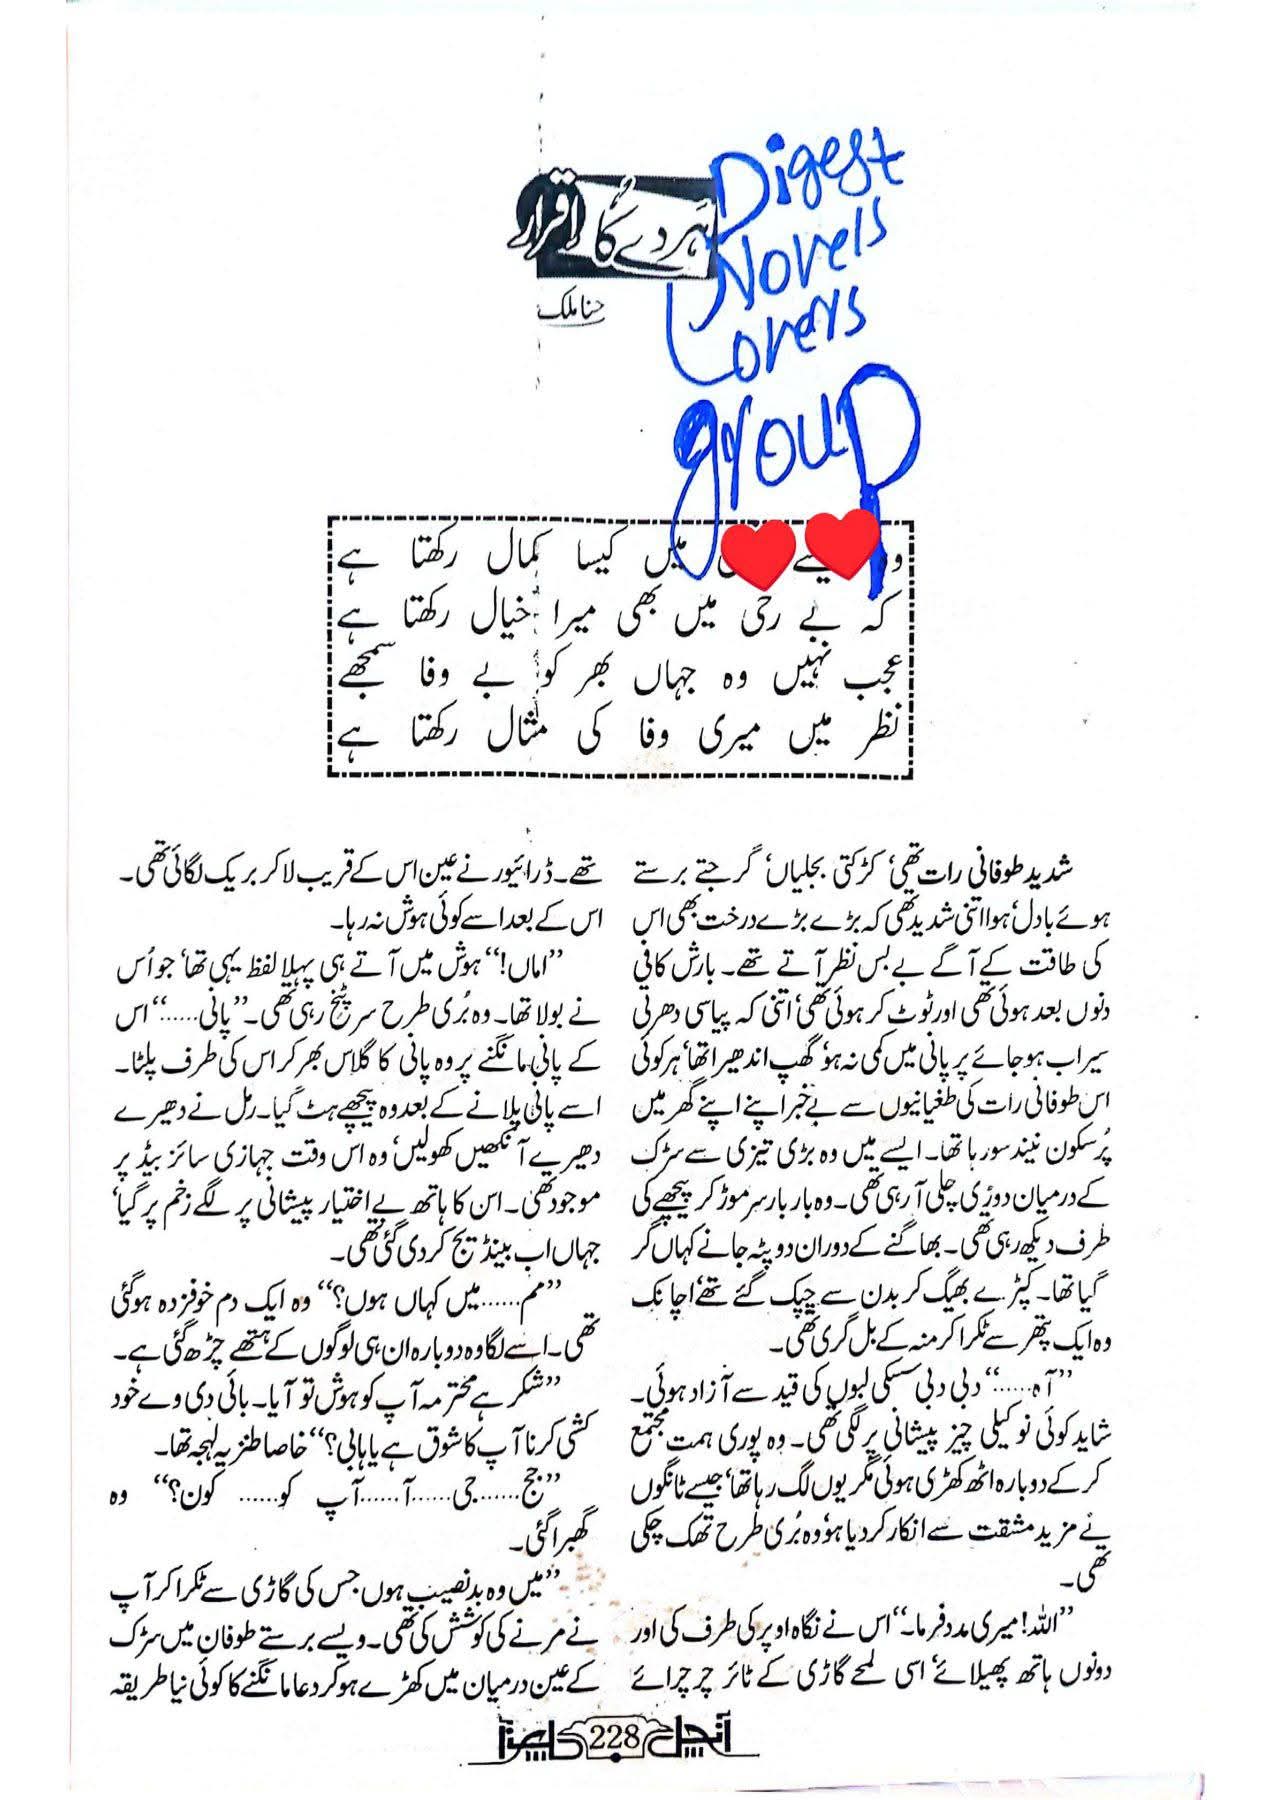 ہردے کا اقرار
حنا ملک
Digest
Novels
Lovers
group
میں کیسا کمال رکھتا ہے
کہ بے رخی میں بھی میرا خیال رکھتا ہے
عجب نہیں وہ جہاں بھر کو بے وفا سمجھے
نظر میں میری وفا کی مثال رکھتا ہے
شدید طوفانی رات تھی، کڑکتی بجلیاں، گرجتے برستے
ہوئے بادل، ہوا اتنی شدید تھی کہ بڑے بڑے درخت بھی اس
کی طاقت کے آگے بے بس نظر آتے تھے۔ بارش کافی
دنوں بعد ہوئی تھی اور ٹوٹ کر ہوئی تھی، اتنی کہ پیاسی دھرتی
سیراب ہوجائے پر پانی میں کمی نہ ہو، گھپ اندھیرا تھا، ہر کوئی
اس طوفانی رات کی طغیانیوں سے بے خبر اپنے اپنے گھر میں
پُرسکون نیند سو رہا تھا۔ ایسے میں وہ بڑی تیزی سے سڑک
کے درمیان دوڑی چلی آرہی تھی۔ وہ بار بار سر موڑ کر پیچھے کی
طرف دیکھ رہی تھی۔ بھاگنے کے دوران دوپٹہ جانے کہاں گر
گیا تھا۔ کپڑے بھیگ کر بدن سے چپک گئے تھے، اچانک
وہ ایک پتھر سے ٹکرا کر منہ کے بل گری تھی۔
”آہ......“ دبی دبی سسکی لبوں کی قید سے آزاد ہوئی۔
شاید کوئی نوکیلی چیز پیشانی پر لگی تھی۔ وہ پوری ہمت مجتمع
کرکے دوبارہ اٹھ کھڑی ہوئی مگر یوں لگ رہا تھا، جیسے ٹانگوں
نے مزید مشقت سے انکار کردیا ہو، وہ بُری طرح تھک چکی
تھی۔
”اللہ! میری مدد فرما۔“ اس نے نگاہ اوپر کی طرف کی اور
دونوں ہاتھ پھیلائے، اسی لمحے گاڑی کے ٹائر چرچرائے
تھے۔ ڈرائیور نے عین اس کے قریب لا کر بریک لگائی تھی۔
اس کے بعد اسے کوئی ہوش نہ رہا۔
”اماں!“ ہوش میں آتے ہی پہلا لفظ یہی تھا، جو اُس
نے بولا تھا۔ وہ بُری طرح سر پٹخ رہی تھی۔ ”پانی......“ اس
کے پانی مانگنے پر وہ پانی کا گلاس بھر کر اس کی طرف پلٹا۔
اسے پانی پلانے کے بعد وہ پیچھے ہٹ گیا۔ رمل نے دھیرے
دھیرے آنکھیں کھولیں، وہ اس وقت جہازی سائز بیڈ پر
موجود تھی۔ اس کا ہاتھ بے اختیار پیشانی پر لگے زخم پر گیا،
جہاں اب بینڈیج کردی گئی تھی۔
”مم......میں کہاں ہوں؟“ وہ ایک دم خوفزدہ ہوگئی
تھی۔ اسے لگا وہ دوبارہ ان ہی لوگوں کے ہتھے چڑھ گئی ہے۔
”شکر ہے محترمہ آپ کو ہوش تو آیا۔ بائی دی وے خود
کشی کرنا آپ کا شوق ہے یا ہابی؟“ خاصا طنزیہ لہجہ تھا۔
”جج......جی......آ......آپ کو...... کون؟“ وہ
گھبرا گئی۔
”میں وہ بدنصیب ہوں جس کی گاڑی سے ٹکرا کر آپ
نے مرنے کی کوشش کی تھی۔ ویسے برستے طوفان میں سڑک
کے عین درمیان میں کھڑے ہوکر دعا مانگنے کا کوئی نیا طریقہ
آنچل 228